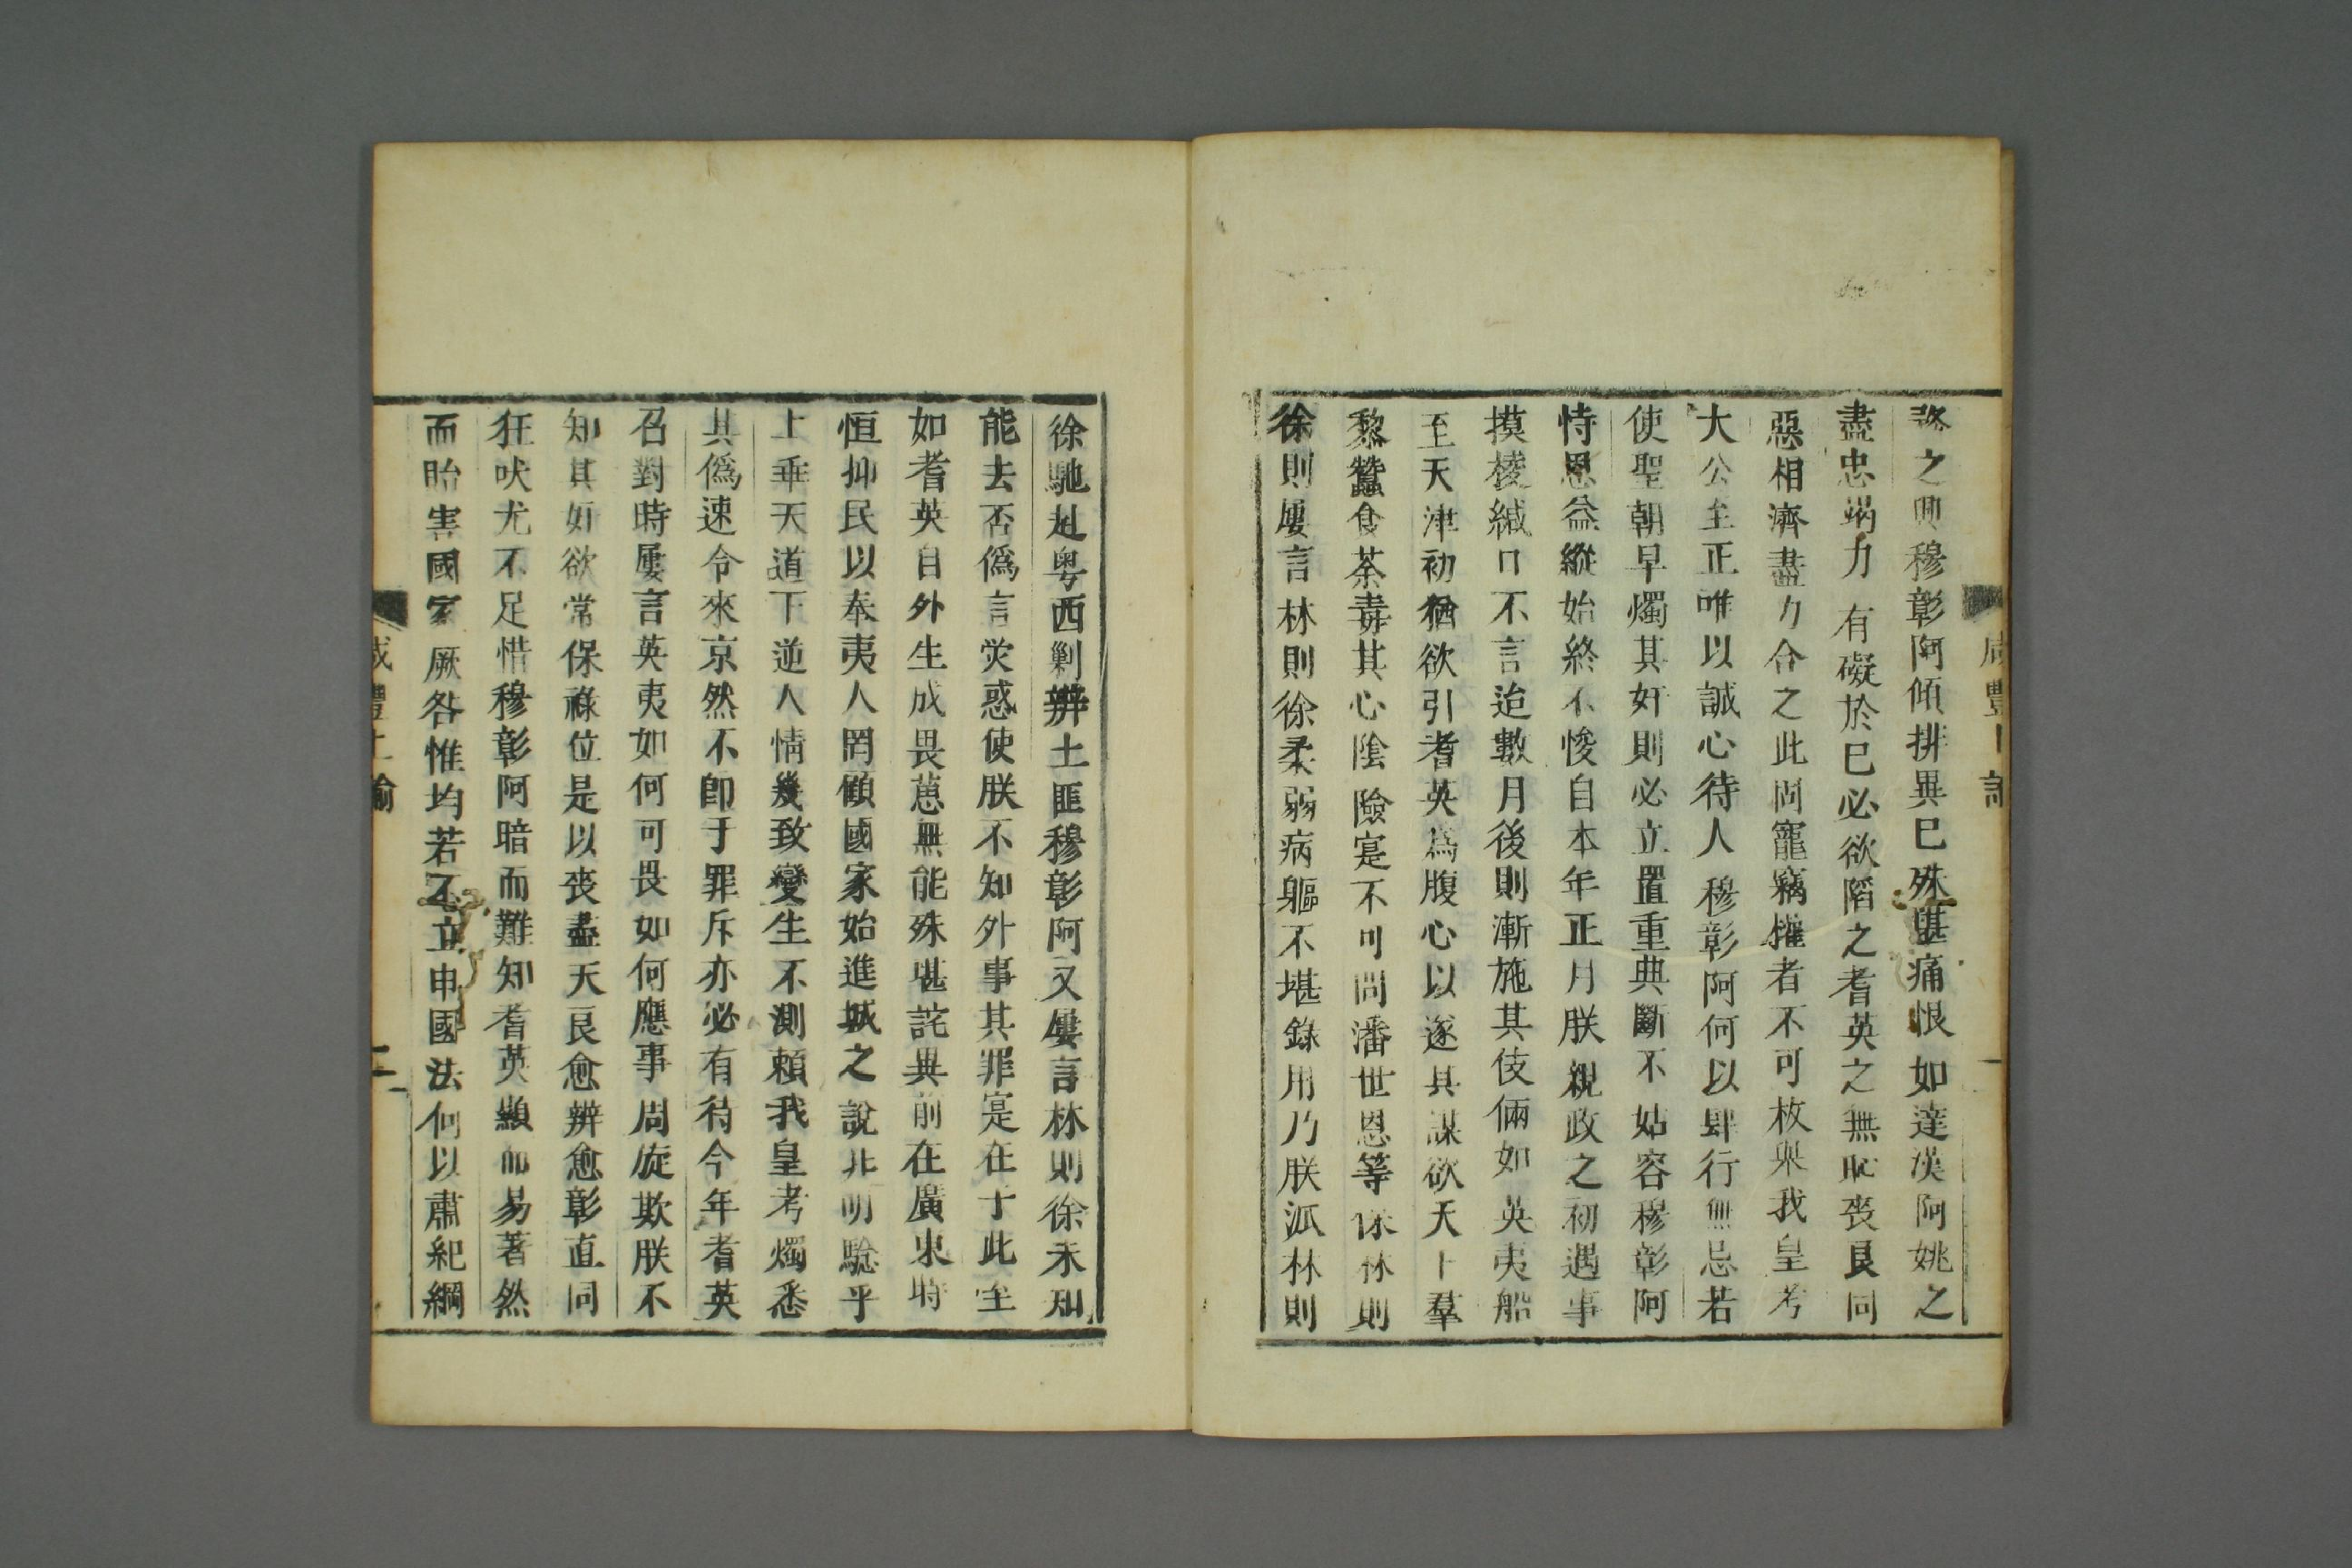 務之興穆彰阿傾排異己殊堪痛恨如達洪阿姚之
盡忠竭力有礙於己必欲陷之耆英之無恥喪良同
惡相濟盡力合之此固寵竊權者不可枚舉我皇考
大公至正唯以誠心待人穆彰阿何以肆行無忌若
使聖朝早燭其奸則必立置重典斷不姑容穆彰阿
恃恩益縱始終不悛自本年正月朕親政之初遇事
摸棱緘口不言迨數月後則漸施其伎倆如英夷船
至天津初猶欲引耆英為腹心以遂其謀欲天下羣
黎蠶食荼毒其心陰險寔不可問潘世恩等保林則
徐則屢言林則徐柔弱病軀不堪錄用乃朕派林則
咸豐上諭
一
徐馳赴粵西剿辦土匪穆彰阿又屢言林則徐未知
能去否偽言熒惑使朕不知外事其罪寔在于此至
如耆英自外生成畏葸無能殊堪詫異前在廣東時
恒抑民以奉夷人罔顧國家始進城之說非明驗乎
上垂天道下逆人情幾致變生不測賴我皇考燭悉
其偽速令來京然不卽于罪斥亦必有待今年耆英
召對時屢言英夷如何可畏如何應事周旋欺朕不
知其奸欲常保祿位是以喪盡天良愈辨愈彰直同
狂吠尤不足惜穆彰阿暗而難知耆英顯而易著然
而貽害國家厥咎惟均若不立申國法何以肅紀綱
咸豐上諭
二